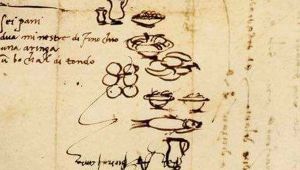 sei pani
dua minestre di finochio
una aringa
u bochal di tondo